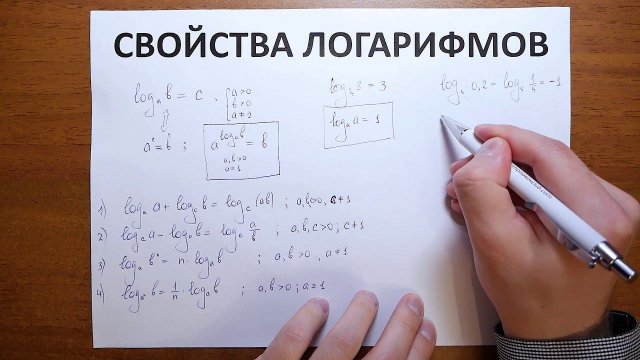 СВОЙСТВА ЛОГАРИФМОВ
logₐ b = c , { a>0 b>0 a≠1
log₂ 8 = 3
log₅ 0,2 = log₅ 1/5 = -1
⇕
aᶜ = b ;
a^(logₐ b) = b
a,b>0
a≠1
logₐ a = 1
1) log_c a + log_c b = log_c (ab) ; a,b,c>0, c≠1
2) log_c a - log_c b = log_c a/b ; a,b,c>0 ; c≠1
3) logₐ bⁿ = n · logₐ b ; a,b>0 , a≠1
4) log_aⁿ b = 1/n · logₐ b ; a,b>0 ; a≠1